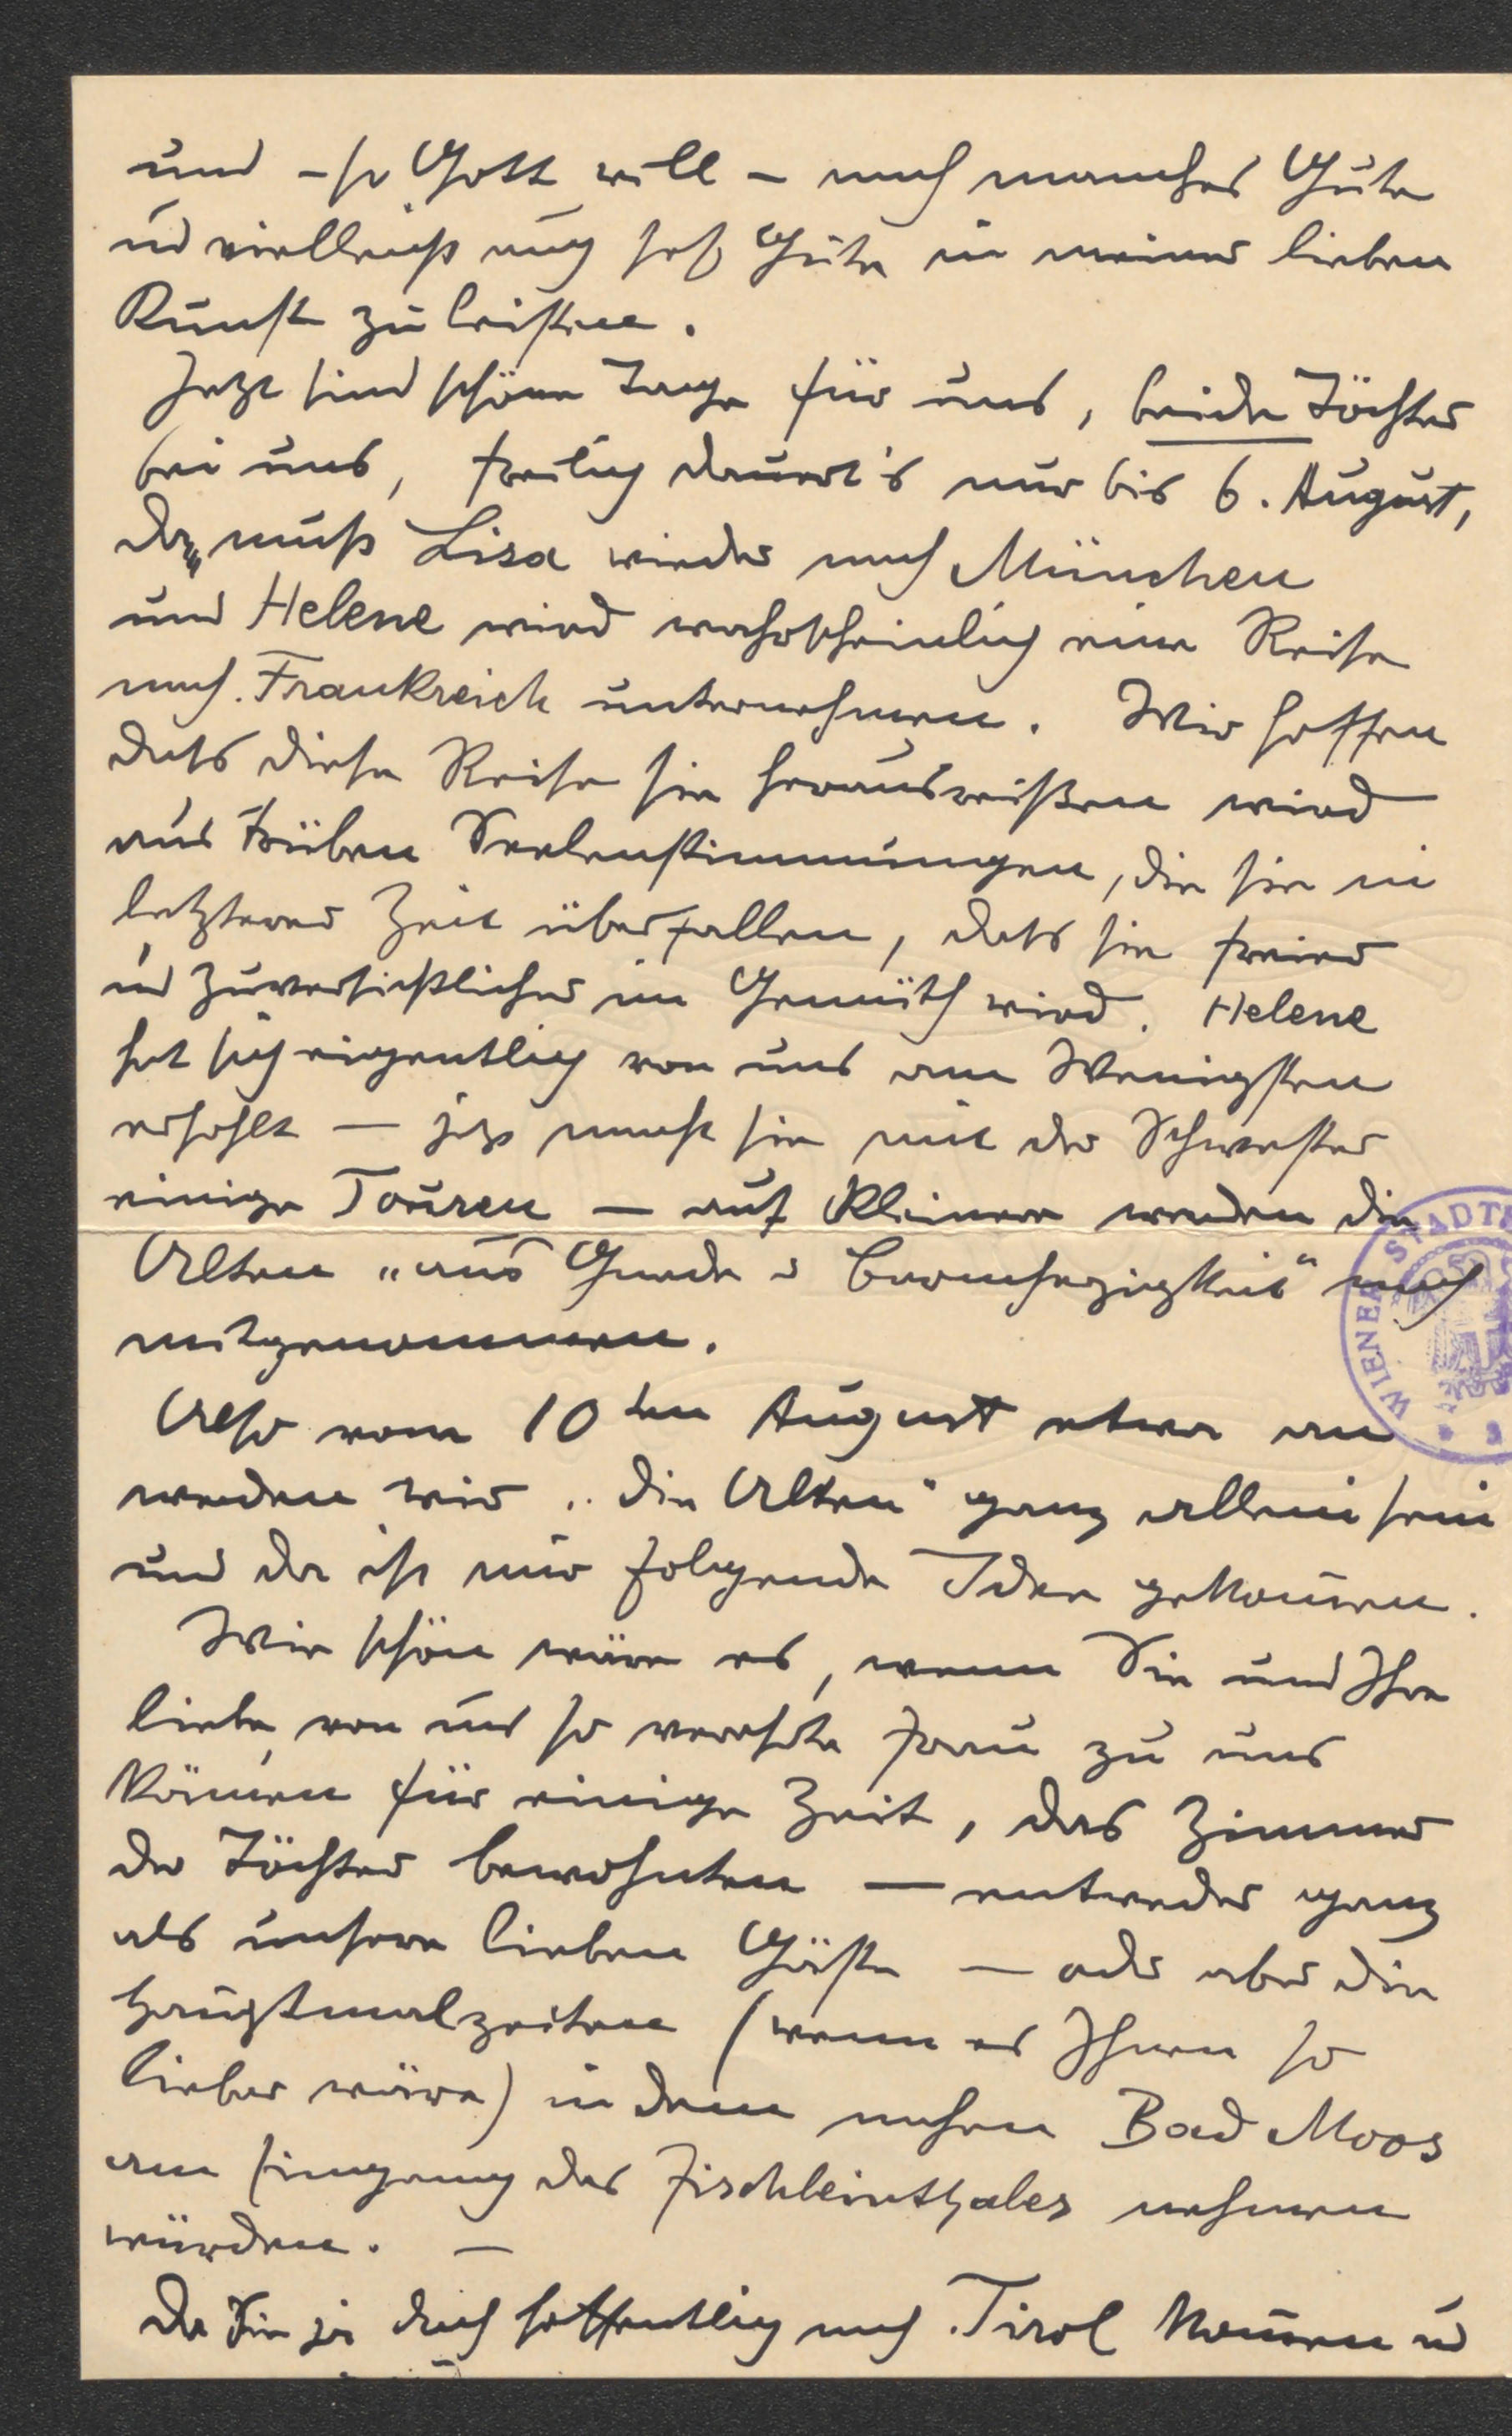 und – so Gott will – noch manches Gute
u̅ vielleicht auch sehr Gute in meiner lieben
Kunst zu leisten.
Jetzt sind schöne Tage für uns, beide Töchter
bei uns, freilich dauert's nur bis 6. August,
da muß Lisa wieder nach München
und Helene wird wahrscheinlich eine Reise
nach Frankreich unternehmen. Wir hoffen
dass diese Reise sie herausreißen wird
aus trüben Seelenstimmungen, die sie in
letzterer Zeit überfallen, dass sie freier
u̅ zuversichtlicher im Gemüth wird. Helene
hat sich eigentlich von uns am Wenigsten
erholt — jetzt macht sie mit der Schwester
einige Touren — auf kleinere werden die
Alten „aus Gnade u Barmherzigkeit" auch
mitgenommen.
Also vom 10ten August etwa an
werden wir „die Alten" ganz allein sein
und da ist mir folgende Idee gekom̅en.
Wie schön wäre es, wenn Sie und Ihre
liebe, von uns so verehrte Frau zu uns
käm̅en für einige Zeit, das Zimmer
der Töchter bewohnten — entweder ganz
als unsere lieben Gäste — oder aber die
Hauptmalzeiten (wenn es Ihnen so
lieber wäre) in dem nahen Bad Moos
am Eingang des Fischleinthales nehmen
würden. —
Da Sie ja doch hoffentlich nach Tirol kom̅en u̅
WIENER STADT